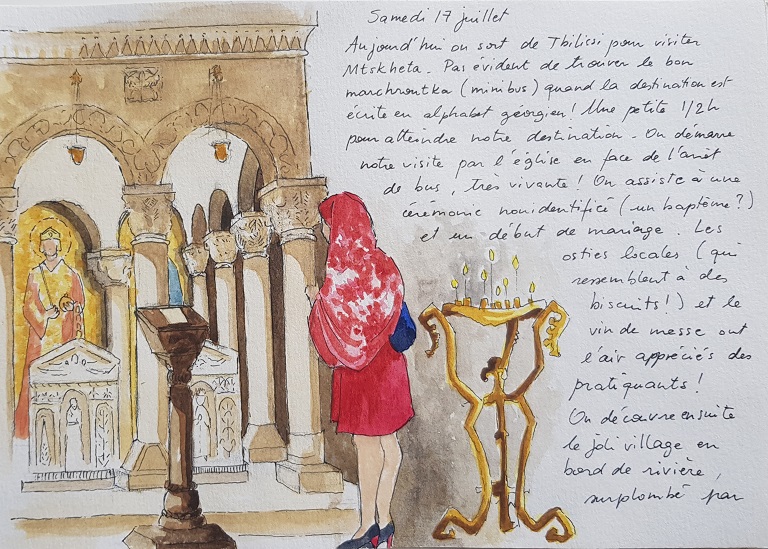 Samedi 17 juillet
Aujourd'hui on sort de Tbilissi pour visiter
Mtskheta. Pas évident de trouver le bon
marchroutka (minibus) quand la destination est
écrite en alphabet géorgien! Une petite 1/2h
pour atteindre notre destination. On démarre
notre visite par l'église en face de l'arrêt
de bus, très vivante! On assiste à une
cérémonie non identifié (un baptême?)
et un début de mariage. Les
osties locales (qui
ressemblent à des
biscuits!) et le
vin de messe ont
l'air appréciés des
pratiquants!
On découvre ensuite
le joli village en
bord de rivière,
surplombé par